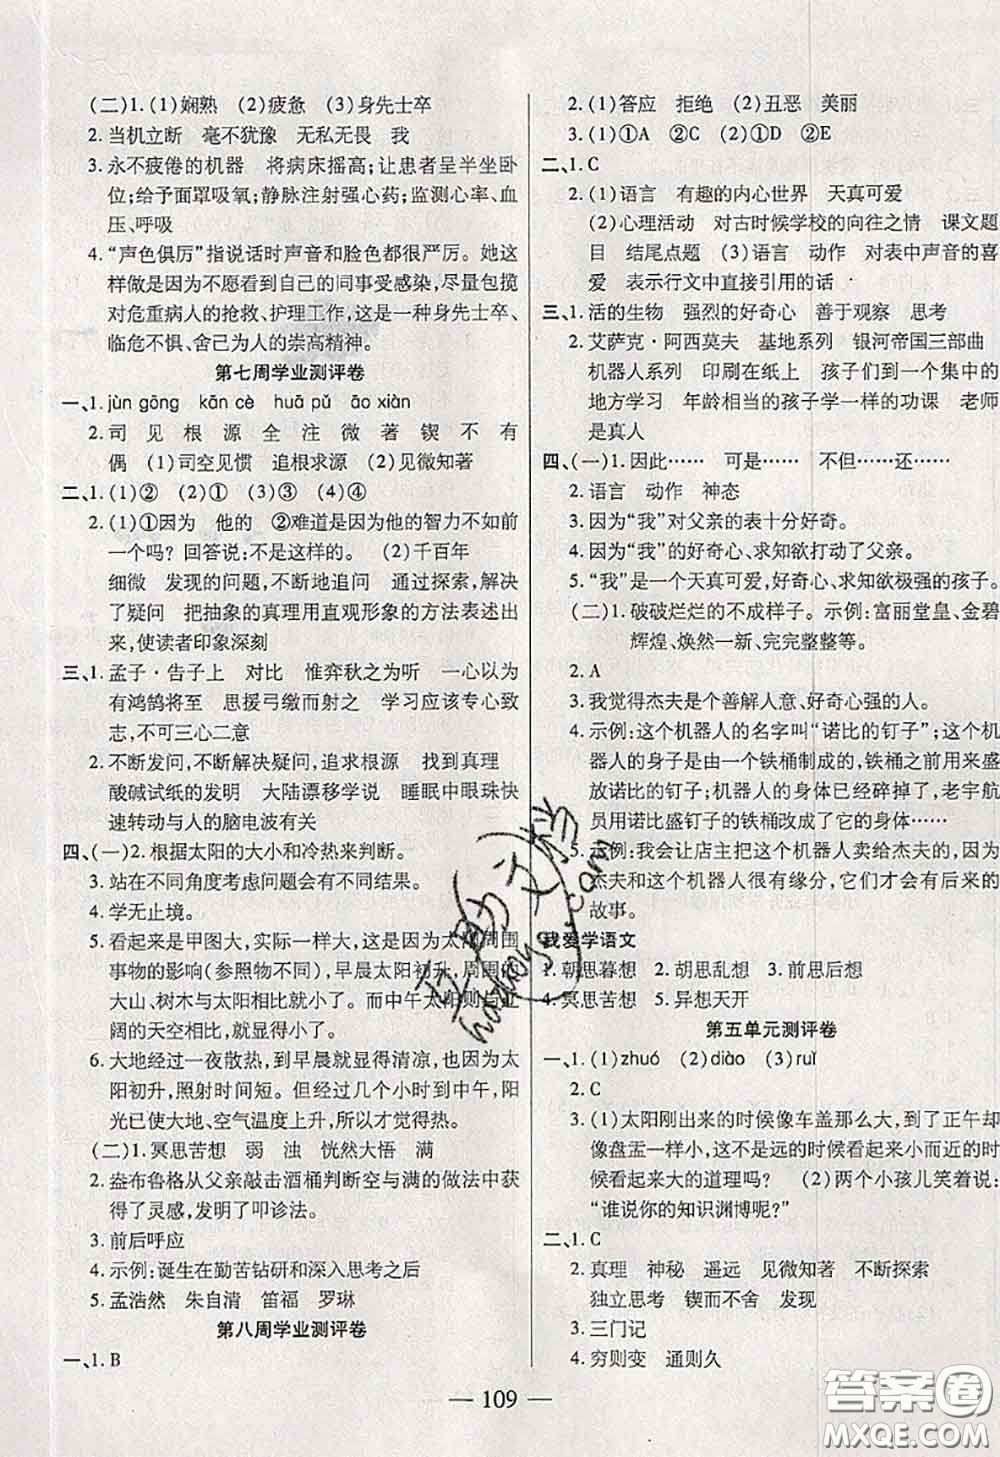 (二)1.(1)娴熟　(2)疲惫　(3)身先士卒
2.当机立断　毫不犹豫　无私无畏　我
3.永不疲倦的机器　将病床摇高;让患者呈半坐卧
位;给予面罩吸氧;静脉注射强心药;监测心率、血
压、呼吸
4.“声色俱厉”指说话时声音和脸色都很严厉。她这
样做是因为不愿看到自己的同事受感染,尽量包揽
对危重病人的抢救、护理工作,这是一种身先士卒、
临危不惧、舍己为人的崇高精神。
第七周学业测评卷
一、1.jùn gōng　kān cè　huā pǔ　āo xiàn
2.司　见　根　源　全　注　微　著　锲　不　有
偶　(1)司空见惯　追根求源　(2)见微知著
二、1.(1)②　(2)①　(3)③　(4)④
2.(1)①因为　他的　②难道是因为他的智力不如前
一个吗?　回答说:不是这样的。　(2)千百年
细微　发现的问题,不断地追问　通过探索,解决
了疑问　把抽象的真理用直观形象的方法表述出
来,使读者印象深刻
三、1.孟子·告子上　对比　惟弈秋之为听　一心以为
有鸿鹄将至　思援弓缴而射之　学习应该专心致
志,不可三心二意
2.不断发问,不断解决疑问,追求根源　找到真理
酸碱试纸的发明　大陆漂移学说　睡眠中眼珠快
速转动与人的脑电波有关
四、(一)2.根据太阳的大小和冷热来判断。
3.站在不同角度考虑问题会有不同结果。
4.学无止境。
5.看起来是甲图大,实际一样大,这是因为太阳周围
事物的影响(参照物不同),早晨太阳初升,周围的
大山、树木与太阳相比就显得大。而中午太阳则与辽
阔的天空相比,就显得小了。
6.大地经过一夜散热,到早晨就显得清凉,也因为太
阳初升,照射时间短。经过几个小时到中午,阳
光已使大地、空气温度上升,所以才觉得热。
(二)1.冥思苦想　弱　浊　恍然大悟　满
2.奁布鲁格从父亲敲击酒桶判断空与满的做法中获
得了灵感,发明了叩诊法。
3.前后呼应
4.示例:诞生在勤苦钻研和深入思考之后
5.孟浩然　朱自清　笛福　罗琳
第八周学业测评卷
一、1.B
2.(1)答应　拒绝　(2)丑恶　美丽
3.(1)①A　②C　(2)①D　②E
二、1.C
2.(1)语言　有趣的内心世界　天真可爱
(2)心理活动　对古时候学校的向往之情　课文题
目　结尾点题　(3)语言　动作　对表中声音的喜
爱　表示行文中直接引用的话
三、1.活的生物　强烈的好奇心　善于观察　思考
2.艾萨克·阿西莫夫　基地系列　银河帝国三部曲
机器人系列　印刷在纸上　孩子们到一个集中的
地方学习　年龄相当的孩子学一样的功课　老师
是真人
四、(一)1.因此……　可是……　不但……还……
2.语言　动作　神态
3.因为“我”对父亲的表十分好奇。
4.因为“我”的好奇心、求知欲打动了父亲。
5.“我”是一个天真可爱,好奇心、求知欲极强的孩子。
(二)1.破破烂烂的不成样子。示例:富丽堂皇、金碧
辉煌、焕然一新、完完整整等。
2.A
3.我觉得杰夫是个善解人意、好奇心强的人。
4.示例:这个机器人的名字叫“诺比的钉子”;这个
机器人的身子是由一个铁桶制成的,铁桶曾经是盛
放诺比的钉子;机器人的身体已经碎掉了,老宇航
员用诺比盛钉子的铁桶改成了它的身体……
5.示例:我会让店主把这个机器人卖给杰夫的,因为
杰夫和这个机器人很有缘分,它们将会有很长的
故事。
我爱学语文
1.朝思暮想　2.胡思乱想　3.前思后想
4.冥思苦想　5.异想天开
第五单元测评卷
一、1.(1)zhuó　(2)diào　(3)ruǐ
2.C
3.(1)太阳刚出来的时候像车盖那么大,到了正午却
像盘盂一样小,这不是远的时候看起来小而近的时
候看起来大的道理吗?　(2)两个小孩儿笑着说:
“谁说你的知识渊博呢?”
二、1.C
2.真理　神秘　遥远　见微知著　不断探索
独立思考　锲而不舍　发现
3.三门记
4.穷则变　通则久
— 109 —
互助文档
huzhuwenda.com
答案圈
MXQE.COM